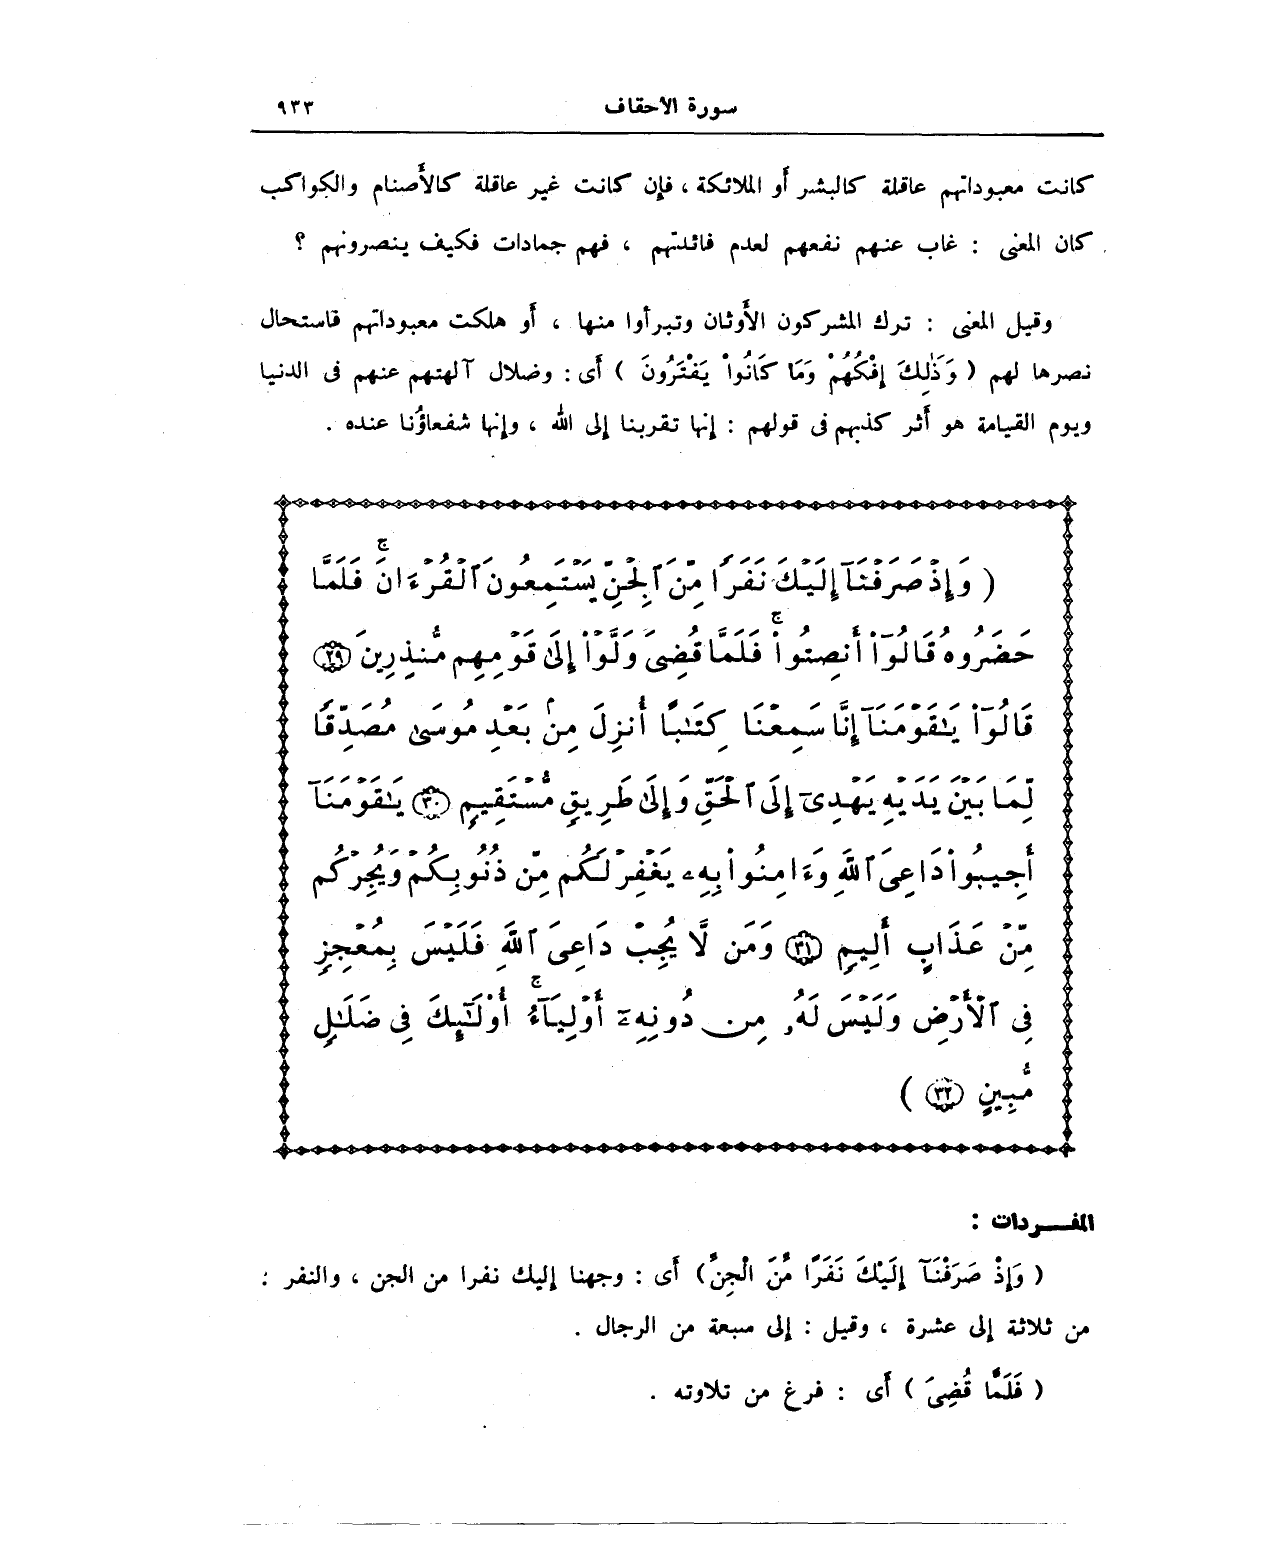 سورة الأحقاف ٩٣٣
كانت معبوداتهم عاقلة كالبشر أو الملائكة ، فإن كانت غير عاقلة كالأصنام والكواكب
كان المعنى : غاب عنهم نفعهم لعدم فائدتهم ، فهم جمادات فكيف ينصرونهم ؟
وقيل المعنى : ترك المشركون الأوثان وتبرأوا منها ، أو هلكت معبوداتهم فاستحال
نصرها لهم ( وَذَٰلِكَ إِفْكُهُمْ وَمَا كَانُوا۟ يَفْتَرُونَ ) أى : وضلال آلهتهم عنهم فى الدنيا
ويوم القيامة هو أثر كذبهم فى قولهم : إنها تقربنا إلى الله ، وإنها شفعاؤنا عنده .
( وَإِذْ صَرَفْنَآ إِلَيْكَ نَفَرًا مِّنَ ٱلْجِنِّ يَسْتَمِعُونَ ٱلْقُرْءَانَ ۚ فَلَمَّا
حَضَرُوهُ قَالُوٓا۟ أَنصِتُوا۟ ۚ فَلَمَّا قُضِىَ وَلَّوْا۟ إِلَىٰ قَوْمِهِم مُّنذِرِينَ ٢٩
قَالُوٓا۟ يَـٰقَوْمَنَآ إِنَّا سَمِعْنَا كِتَـٰبًا أُنزِلَ مِنۢ بَعْدِ مُوسَىٰ مُصَدِّقًا
لِّمَا بَيْنَ يَدَيْهِ يَهْدِىٓ إِلَى ٱلْحَقِّ وَإِلَىٰ طَرِيقٍ مُّسْتَقِيمٍ ٣٠ يَـٰقَوْمَنَآ
أَجِيبُوا۟ دَاعِىَ ٱللَّهِ وَءَامِنُوا۟ بِهِۦ يَغْفِرْ لَكُم مِّن ذُنُوبِكُمْ وَيُجِرْكُم
مِّنْ عَذَابٍ أَلِيمٍ ٣١ وَمَن لَّا يُجِبْ دَاعِىَ ٱللَّهِ فَلَيْسَ بِمُعْجِزٍ
فِى ٱلْأَرْضِ وَلَيْسَ لَهُۥ مِن دُونِهِۦٓ أَوْلِيَآءُ ۚ أُو۟لَـٰٓئِكَ فِى ضَلَـٰلٍ
مُّبِينٍ ٣٢ )
المفـــردات :
( وَإِذْ صَرَفْنَآ إِلَيْكَ نَفَرًا مِّنَ الْجِنِّ ) أى : وجهنا إليك نفرا من الجن ، والنفر :
من ثلاثة إلى عشرة ، وقيل : إلى سبعة من الرجال .
( فَلَمَّا قُضِىَ ) أى : فرغ من تلاوته .